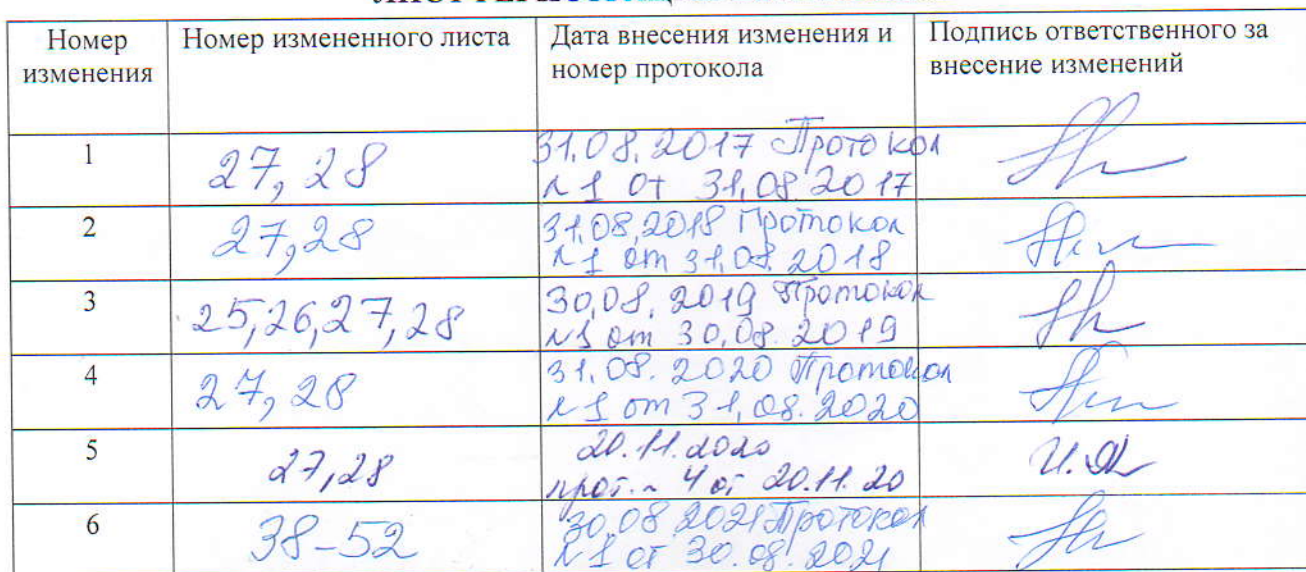 Номер изменения	Номер измененного листа	Дата внесения изменения и номер протокола	Подпись ответственного за внесение изменений
1	27, 28	31.08.2017 Протокол
№1 от 31.08.2017
2	27,28	31.08.2018 Протокол
№1 от 31.08.2018
3	25,26,27,28	30.08.2019 Протокол
№1 от 30.08.2019
4	27, 28	31.08.2020 Протокол
№1 от 31.08.2020
5	27,28	20.11.2020
прот. № 4 от 20.11.20
6	38-52	30.08.2021 Протокол
№1 от 30.08.2021